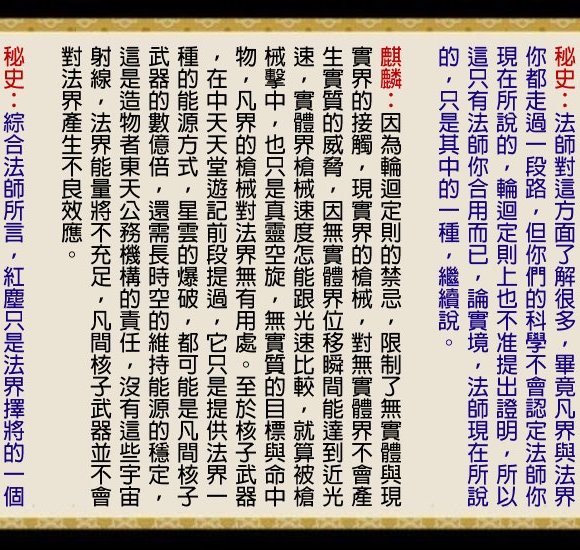 秘史：法師對這方面了解很多，畢竟凡界與法界
你都走過一段路，但你們的科學不會認定法師你
現在所說的，輪迴定則上也不准提出證明，所以
這只有法師你合用而已，論實境，法師現在所說
的，只是其中的一種，繼續說。
麒麟：因為輪迴定則的禁忌，限制了無實體與現
實界的接觸，現實界的槍械，對無實體界不會產
生實質的威脅，因無實體界位移瞬間能達到近光
速，實體界槍械速度怎能跟光速比較，就算被槍
械擊中，也只是真靈空旋，無實質的目標與命中
物，凡界的槍械對法界無有用處。至於核子武器
，在中天天堂遊記前段提過，它只是提供法界一
種的能源方式，星雲的爆破，都可能是凡間核子
武器的數億倍，還需長時空的維持能源的穩定，
這是造物者東天公務機構的責任，沒有這些宇宙
射線，法界能量將不充足，凡間核子武器並不會
對法界產生不良效應。
秘史：綜合法師所言，紅塵只是法界擇將的一個